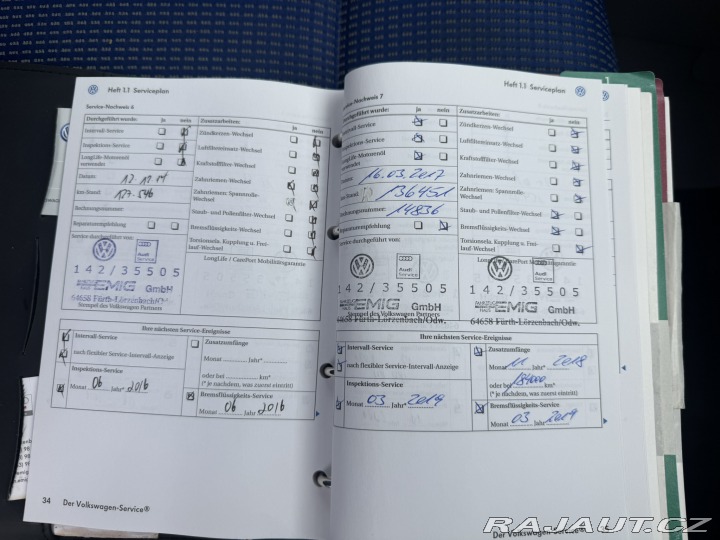 Heft 1.1 Serviceplan
Service-Nachweis 6
Durchgeführt wurde: Ja nein
Intervall-Service
Inspektions-Service
LongLife-Motorenöl
verwendet
Datum:
km-Stand:
Rechnungsnummer:
Reparaturempfehlung
Service durchgeführt von:
Zusatzarbeiten: ja nein
Zündkerzen-Wechsel
Luftfiltereinsatz-Wechsel
Kraftstofffilter-Wechsel
Zahnriemen-Wechsel
Zahnriemen- Spannrolle-
Wechsel
Staub- und Pollenfilter-Wechsel
Bremsflüssigkeits-Wechsel
Torsionsela. Kupplung u. Frei-
lauf-Wechsel
LongLife / CarePort Mobilitätsgarantie
Audi
Service
142/35505
EMIG GmbH
64658 Fürth-Lörzenbach/Odw.
Stempel des Volkswagen Partners
Ihre nächsten Service-Ereignisse
Intervall-Service
nach flexibler Service-Intervall-Anzeige
Inspektions-Service
Monat 06 Jahr* 2016
Zusatzumfänge
Monat Jahr*
oder bei km*
(* je nachdem, was zuerst eintritt)
Bremsflüssigkeits-Service
Monat 06 Jahr 2016
34 Der Volkswagen-Service®
Heft 1.1 Serviceplan
Service-Nachweis 7
Durchgeführt wurde: ja nein
Intervall-Service
Inspektions-Service
LongLife-Motorenöl
verwendet
16.03.2017
136451
Rechnungsnummer: 14836
Reparaturempfehlung
Service durchgeführt von:
Zusatzarbeiten: ja nein
Zündkerzen-Wechsel
Luftfiltereinsatz-Wechsel
Kraftstofffilter-Wechsel
Zahnriemen-Wechsel
Zahnriemen- Spannrolle-
Wechsel
Staub- und Pollenfilter-Wechsel
Bremsflüssigkeits-Wechsel
Torsionsela. Kupplung u. Frei-
lauf-Wechsel
Mobilitätsgarantie
Audi
Service
142/35505
EMIG GmbH
64658 Fürth-Lörzenbach/Odw.
Stempel des Volkswagen Partners
Ihre nächsten Service-Ereignisse
Intervall-Service
nach flexibler Service-Intervall-Anzeige
Inspektions-Service
Monat 03 Jahr* 2019
Zusatzumfänge
Monat 11 Jahr* 2018
oder bei 184000 km*
(* je nachdem, was zuerst eintritt)
Bremsflüssigkeits-Service
Monat 03 Jahr 2019
Der Volkswagen-Service®
RAJAUT.CZ